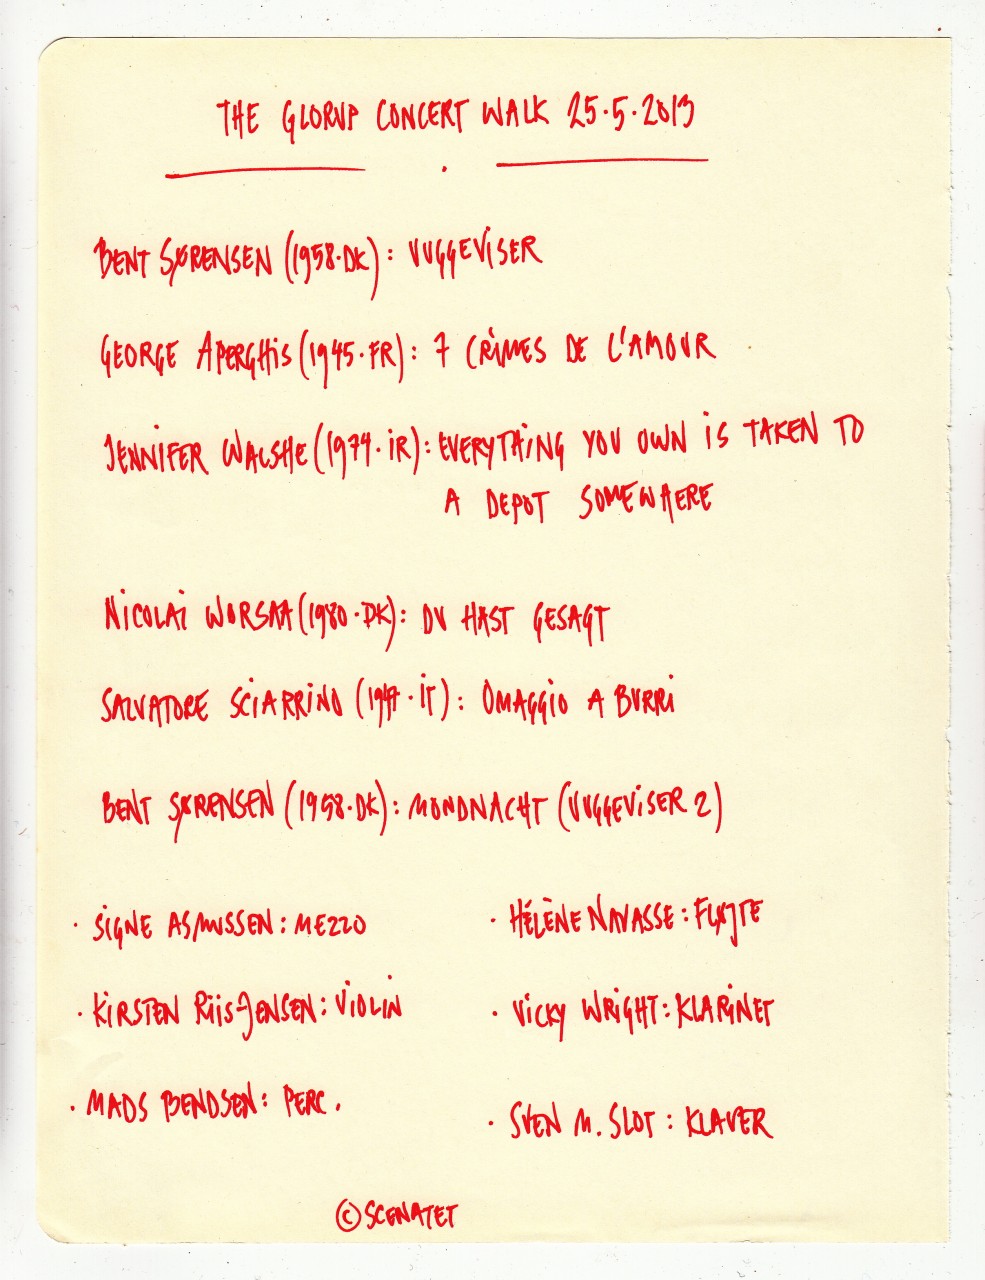 THE GLORUP CONCERT WALK 25.5.2013
BENT SØRENSEN (1958.DK): VUGGEVISER
GEORGE APERGHIS (1945.FR): 7 CRIMES DE L'AMOUR
JENNIFER WALSHE (1974.IR): EVERYTHING YOU OWN IS TAKEN TO
A DEPOT SOMEWHERE
NICOLAI WORSAA (1980.DK): DU HAST GESAGT
SALVATORE SCIARRINO (1947.IT): OMAGGIO A BURRI
BENT SØRENSEN (1958.DK): MONDNACHT (VUGGEVISER 2)
· SIGNE ASMUSSEN: MEZZO
· HÉLÈNE NAVASSE: FLØJTE
· KIRSTEN RIIS-JENSEN: VIOLIN
· VICKY WRIGHT: KLARINET
· MADS BENDSEN: PERC.
· SVEN M. SLOT: KLAVER
© SCENATET